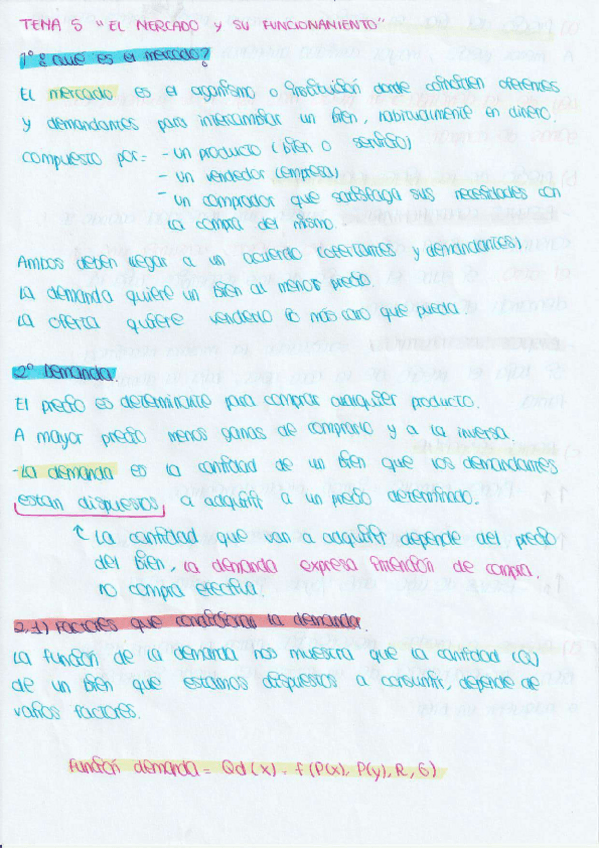 TEMA 5 "EL MERCADO Y SU FUNCIONAMIENTO"
1º ¿Qué es el mercado?
El mercado es el organismo o institución donde coinciden oferentes
y demandantes para intercambiar un bien, habitualmente en dinero.
Compuesto por: - un producto (bien o servicio)
- un vendedor (empresa)
- un comprador que satisfaga sus necesidades con
la compra del mismo.
Ambos deben llegar a un acuerdo (ofertantes y demandantes)
La demanda quiere un bien al menor precio.
La oferta quiere venderlo lo más caro que pueda.
2º Demanda.
El precio es determinante para comprar cualquier producto.
A mayor precio menos ganas de comprarlo y a la inversa.
- La demanda es la cantidad de un bien que los demandantes
están dispuestos, a adquirir a un precio determinado.
La cantidad que van a adquirir depende del precio
del bien, la demanda expresa intención de compra.
no compra efectiva.
2.1) Factores que condicionan la demanda.
La función de la demanda nos muestra que la cantidad (Q)
de un bien que estamos dispuestos a consumir, depende de
varios factores.
Función demanda = Qd (x) = f (P(x), P(y), R, G)